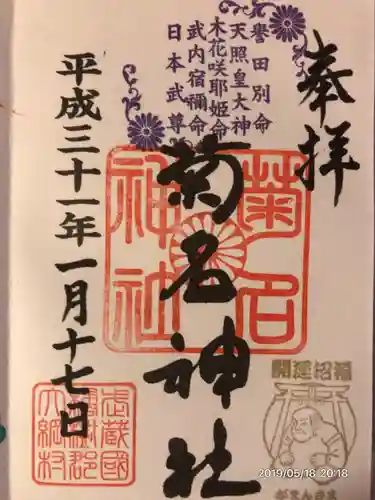 奉拝
譽田別命
天照皇大神
木花咲耶姫命
武内宿禰命
日本武尊
菊名神社
菊名
神社
平成三十一年一月十七日
武蔵國
橘樹郡
大綱村
開運招福
2019/05/18 20:18